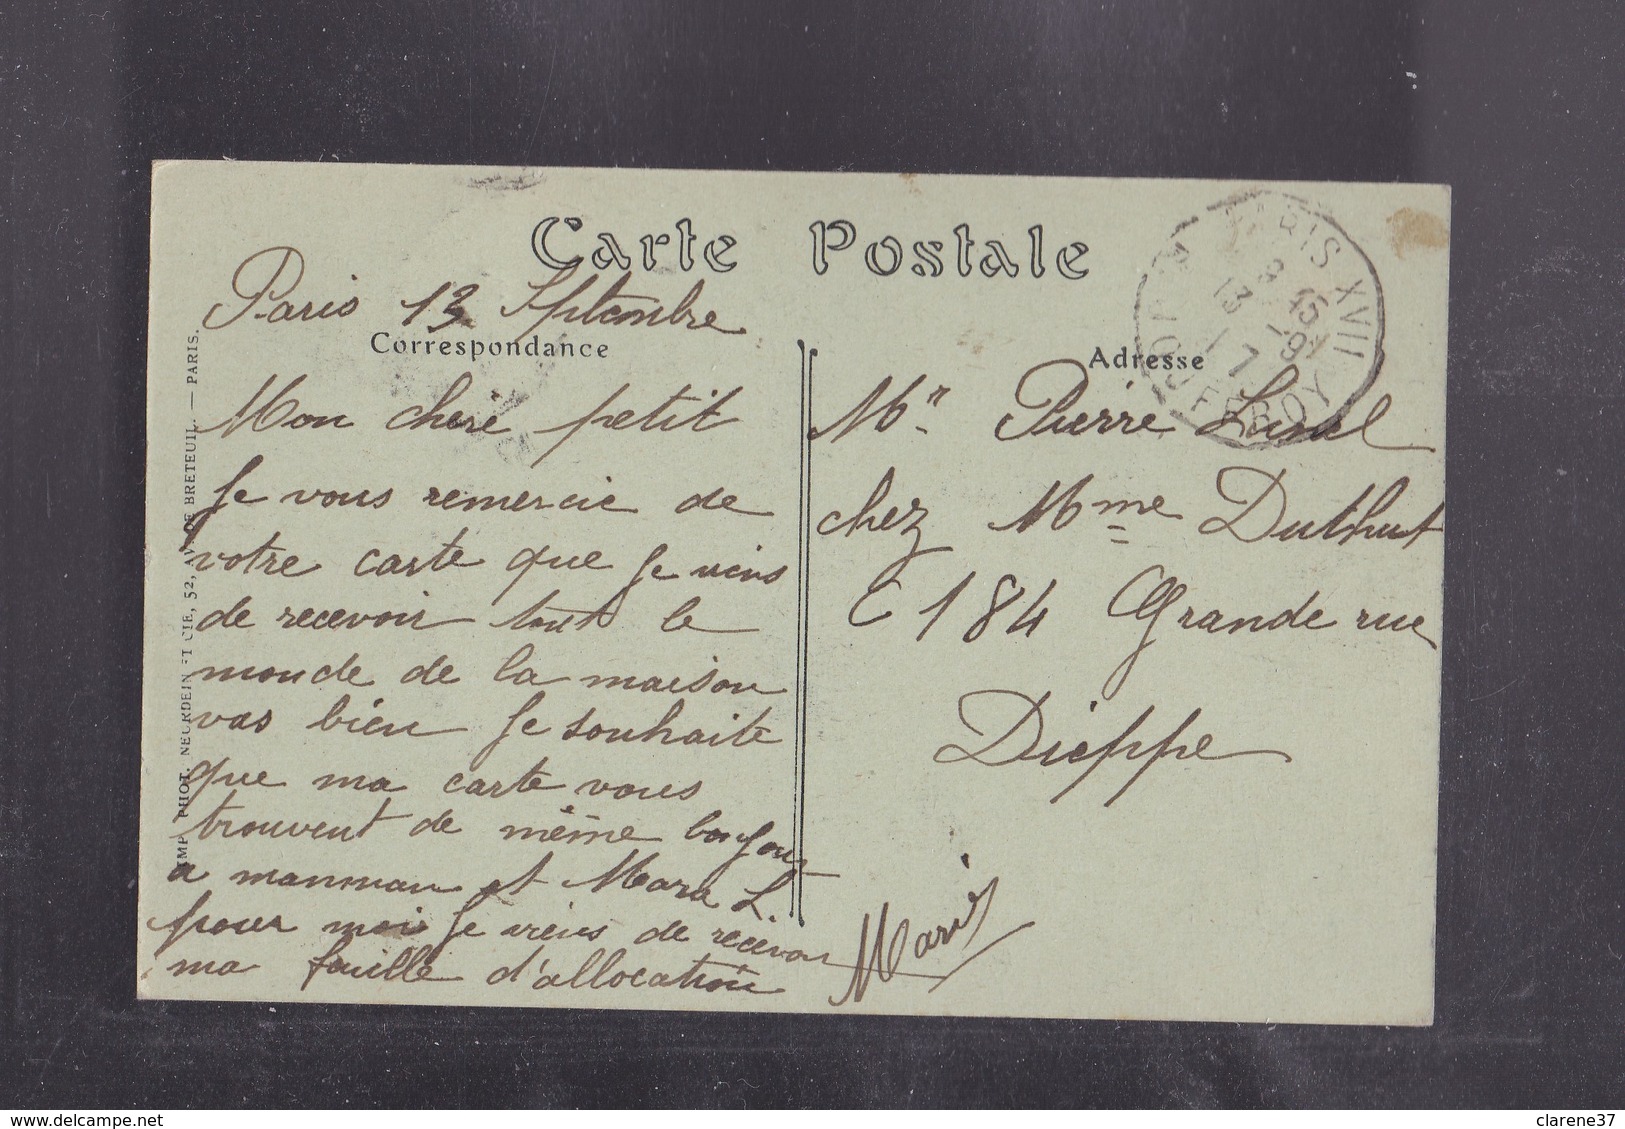 Carte Postale
Paris 13 Septembre
Correspondance
Mon chéré petit
Je vous remercie de
votre carte que je viens
de recevoir tout le
monde de la maison
vas bien Je souhaite
que ma carte vous
trouvent de même bonjour
a manman et Mara L.
pour moi Je viens de recevoir
ma feuille d'allocation
Marie
Adresse
Mr. Pierre
chez Mme Duthut
184 Grande rue
Dieppe
IMP. PHOT. NEURDEIN ET CIE, 52, AV. DE BRETEUIL. — PARIS.
PARIS XVII
13
delcampe.net
clarene37